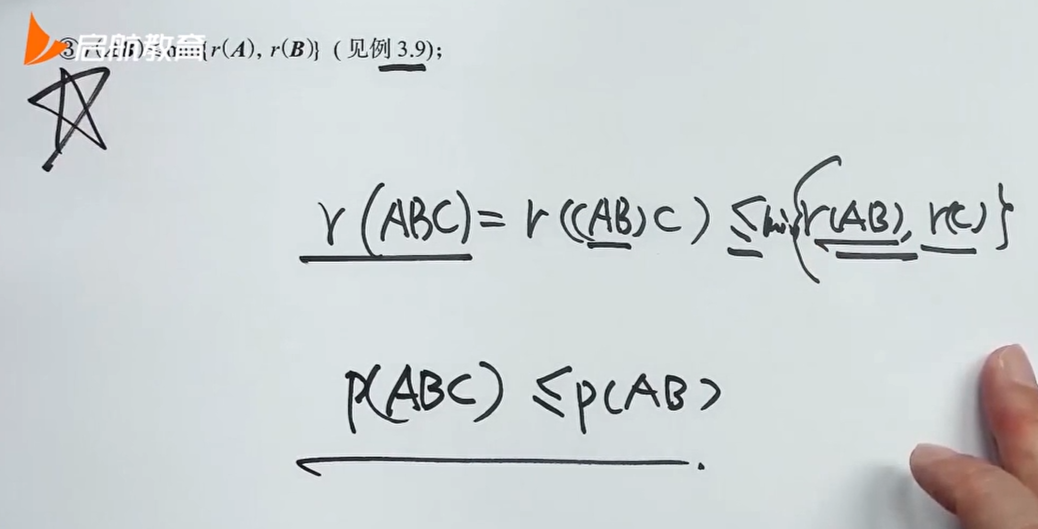 启航教育
③ r(AB) {r(A), r(B)} (见例 3.9);
r(ABC) = r((AB)C) ≤ min{r(AB), r(C)}
p(ABC) ≤ p(AB)